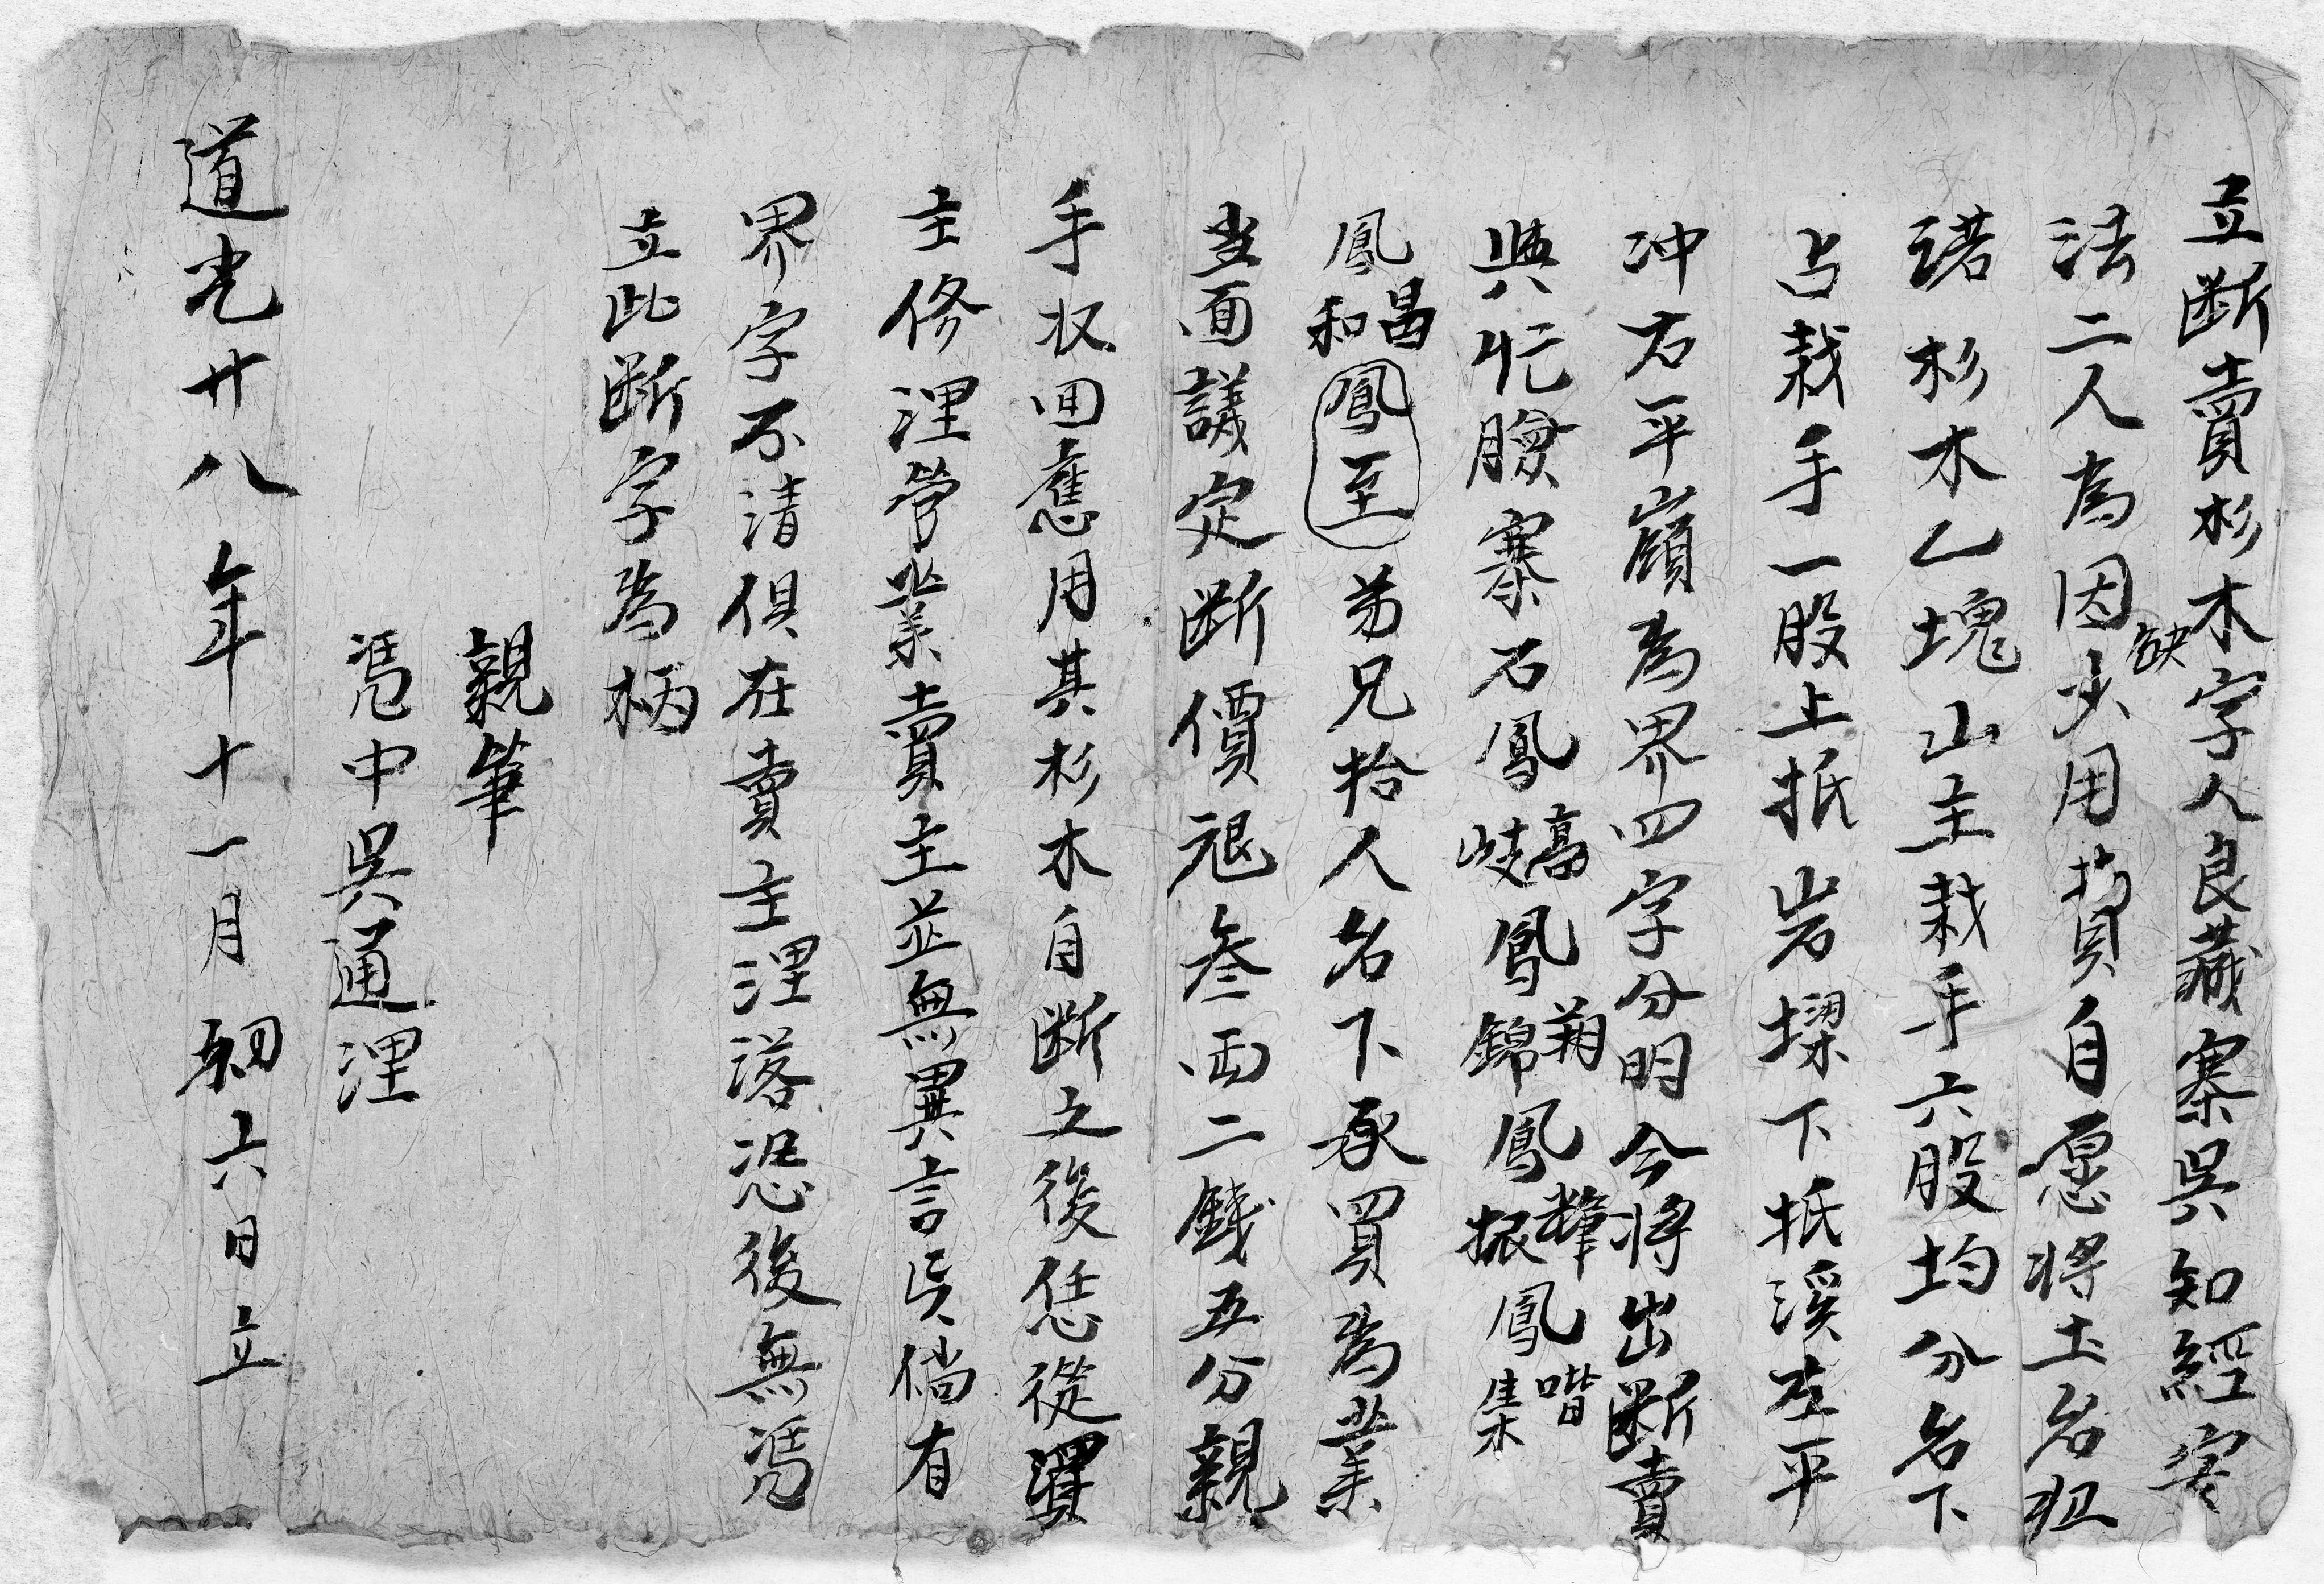 立断賣杉木字人良藏寨吳知經客
法二人為因缺少用費自愿將土名扭
諾杉木乙塊山主栽手六股均分名下
占栽手一股上抵岩墚下抵溪左平
冲右平嶺為界四字分明今將出断賣
與忙膭寨石鳳高岐鳳朔錦鳳肇振鳳喈集
鳳昌和鳳至弟兄拾人名下承買為業
当面議定断價艮叁両二錢五分親
手収回應用其杉木自断之後恁從買
主修浬管業賣主並無異言民倘有
界字不清俱在賣主浬落恐後無馮
立此断字為柄
親筆
馮中吳通浬
道光廿八年十一月初六日立